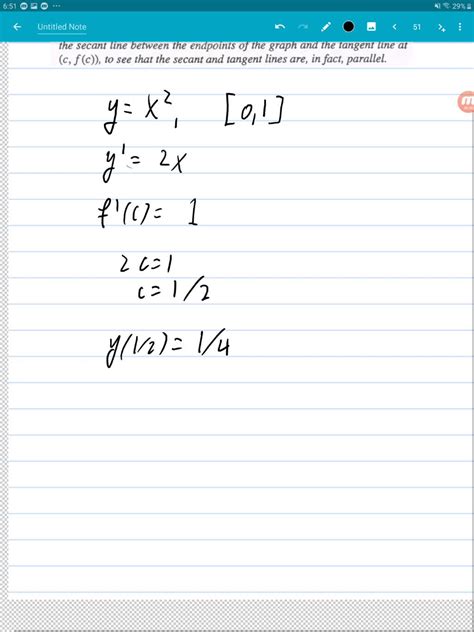 6:51 29%
Untitled Note 51
the secant line between the endpoints of the graph and the tangent line at
(c, f(c)), to see that the secant and tangent lines are, in fact, parallel.
y = x², [0,1]
y' = 2x
f'(c) = 1
2c=1
c=1/2
y(1/2) = 1/4